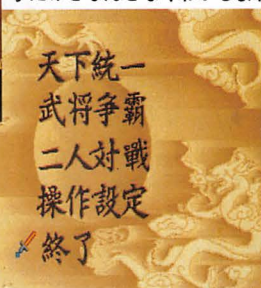 天下統一
武将争霸
二人対戰
操作設定
終了